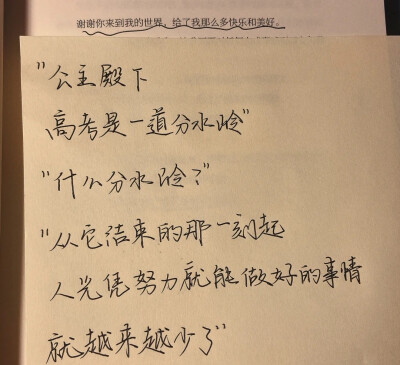 谢谢你来到我的世界，给了我那么多快乐和美好。
"公主殿下
高考是一道分水岭"
"什么分水岭？"
"从它结束的那一刻起
人光凭努力就能做好的事情
就越来越少了"